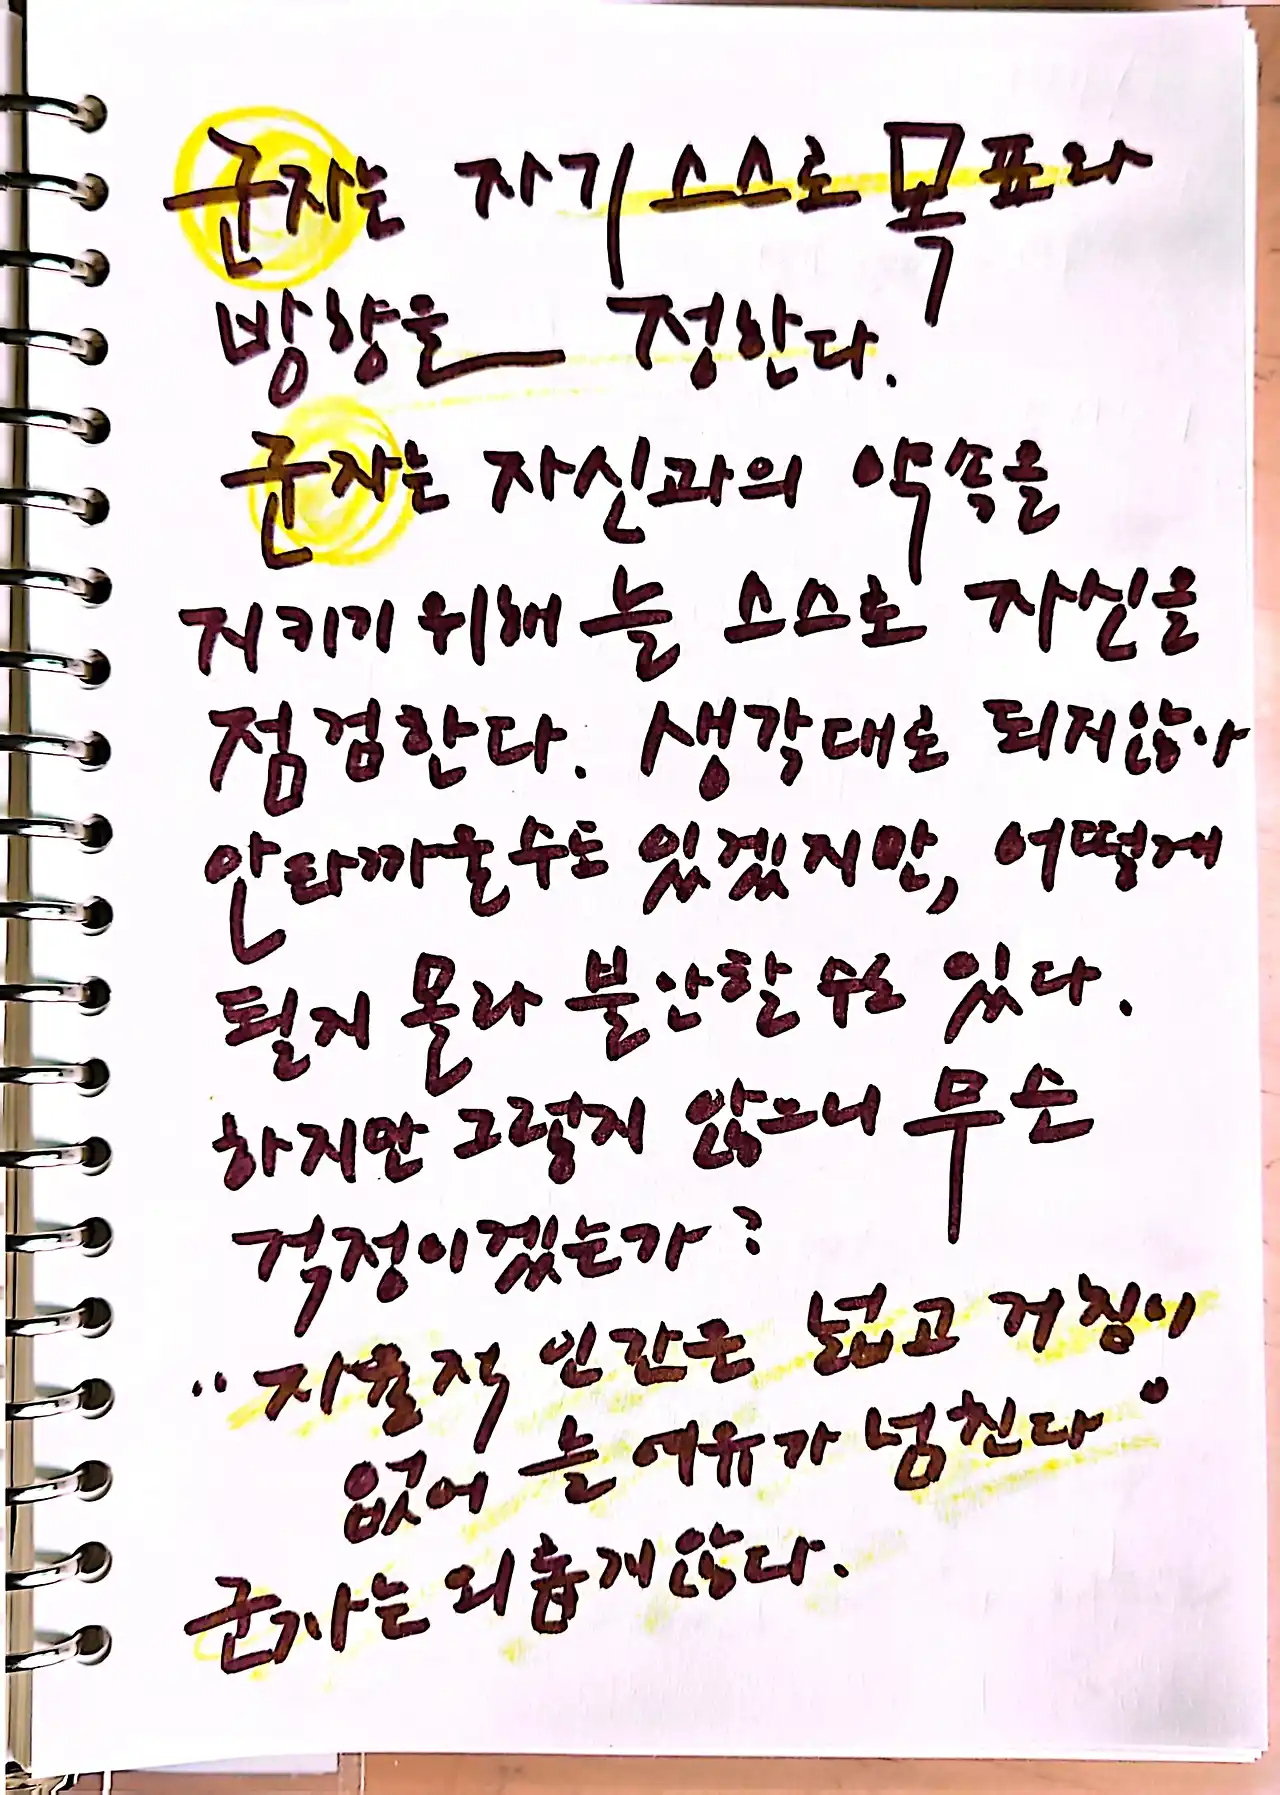 군자는 자기 스스로 목표와
방향을 정한다.
군자는 자신과의 약속을
지키기 위해 늘 스스로 자신을
점검한다. 생각대로 되지않아
안타까울수도 있겠지만, 어떻게
될지 몰라 불안할 수도 있다.
하지만 그렇지 않으니 무슨
걱정이겠는가?
"자율적 인간은 넓고 거침이
없어 늘 여유가 넘친다"
군자는 외롭지않다.